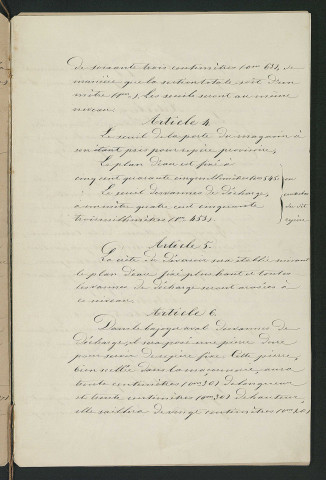 de soixante trois centimètres (0m 63), de
manière que la section totale soit d'un
mètre (1m). Les seuils seront au même
niveau.
Article 4
Le seuil de la porte du magasin à
son étant pris pour repère provisoire,
Le plan d'eau est fixé à
cinq cent quarante cinq millimètres 0m 545
Le seuil des vannes de décharge,
à un mètre quatre cent cinquante
trois millimètres (1m. 453).
au
du dit
repère
Article 5.
La crête du déversoir sera établie suivant
le plan d'eau fixé plus haut et toutes
les vannes de décharge seront arasées à
ce niveau.
Article 6
Dans le bajoyer aval des vannes de
décharge, il sera posé une pierre dure
pour servir de repère fixe. Cette pierre,
bien scellée dans la maçonnerie, aura
trente centimètres (0m 30) de longueur
et trente centimètres (0m 30) de hauteur,
elle saillira de vingt centimètres (0m 20)